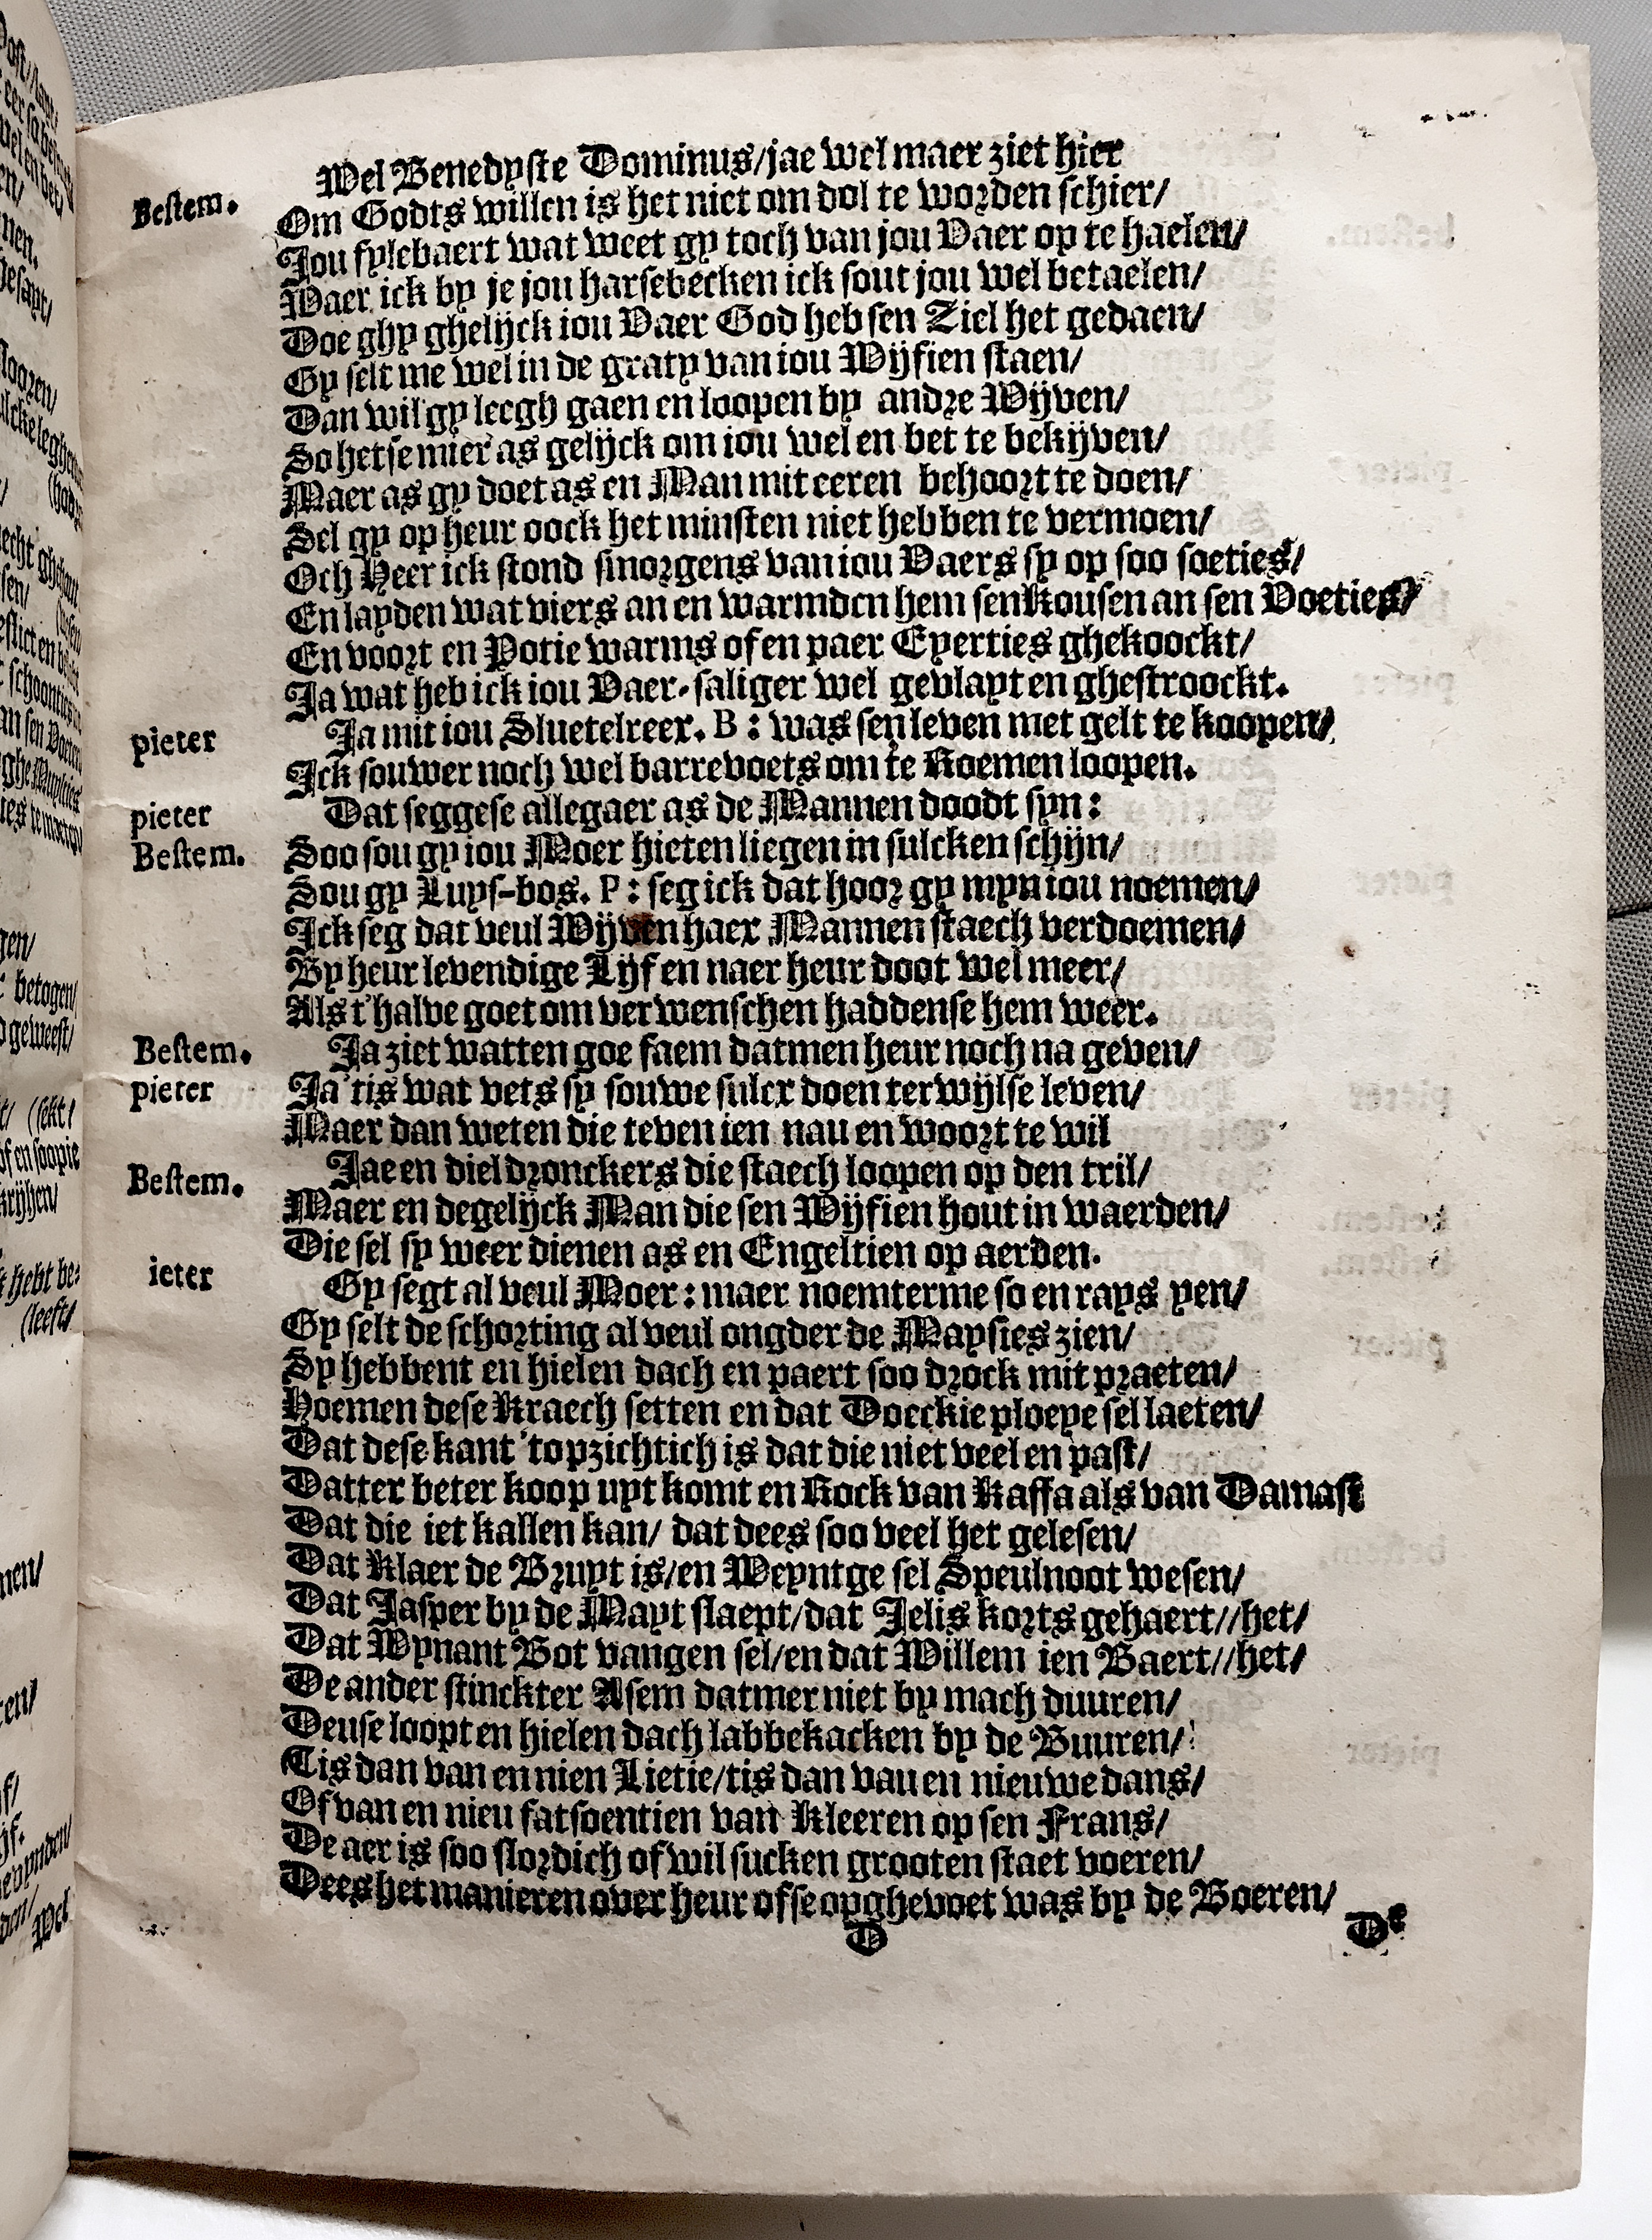 Wel Benedyste Dominus/jae wel maer ziet hier
Bestem. Om Godts willen is het niet om dol te worden schier/
Jou fylebaert wat weet gy toch van jou Vaer op te haelen/
Waer ick by je jou harsebecken ick sout jou wel betaelen/
Doe ghy ghelijck iou Vaer God heb sen Ziel het gedaen/
Gy selt me wel in de graty van iou Wijfien staen/
Dan wil gy leegh gaen en loopen by andre Wijven/
So hetse mier as gelijck om iou wel en bet te bekijven/
Maer as gy doet as en Man mit eeren behoort te doen/
Sel gy op heur oock het minsten niet hebben te vermoen/
Och Heer ick stond smorgens van iou Vaers sy op soo soeties/
En layden wat viers an en warmden hem sen Kousen an sen Voeties/
En voort en Potie warms of en paer Eyerties ghekoockt/
Ja wat heb ick iou Vaer-saliger wel gevlayt en ghestroockt.
pieter Ja mit iou Sluetelreer. B : was sen leven met gelt te koopen/
Ick souwer noch wel barrevoets om te Roemen loopen.
pieter Dat seggese allegaer as de Mannen doodt syn :
Bestem. Soo sou gy iou Moer hieten liegen in sulcken schijn/
Sou gy Luys-bos. P : seg ick dat hoor gy myn iou noemen/
Ick seg dat veul Wijven haer Mannen staech verdoemen/
By heur levendige Lijf en naer heur doot wel meer/
Als t'halve goet om ver wenschen haddense hem weer.
Bestem. Ja ziet watten goe faem datmen heur noch na geven/
pieter Ja 'tis wat vets sy souwe sulcx doen terwijlse leven/
Maer dan weten die teven ien nau en woort te wil
Bestem. Jae en dieldronckers die staech loopen op den tril/
Maer en degelijck Man die sen Wijfien hout in waerden/
Die sel sy weer dienen as en Engeltien op aerden.
ieter Gy segt al veul Moer : maer noemterme so en rays yen/
Gy selt de schorting al veul ongder de Maysies zien/
Sy hebbent en hielen dach en paert soo drock mit praeten/
Hoemen dese Kraech setten en dat Doeckie ploeye sel laeten/
Dat dese kant 't opzichtich is dat die niet veel en past/
Datter beter koop uyt komt en Rock van Kaffa als van Damast
Dat die iet kallen kan/ dat dees soo veel het gelesen/
Dat Klaer de Bruyt is/en Weyntge sel Speulnoot wesen/
Dat Jasper by de Mayt slaept/dat Jelis korts gehaert//het/
Dat Wynant Bot vangen sel/en dat Willem ien Baert//het/
De ander stinckter Asem datmer niet by mach duuren/
Deuse loopt en hielen dach labbekacken by de Buuren/
Tis dan van en nien Lietie/tis dan vau en nieuwe dans/
Of van en nieu fatsoentien van Kleeren op sen Frans/
De aer is soo slordich of wil sucken grooten staet voeren/
Dees het manieren over heur ofse opghevoet was by de Boeren/
D De